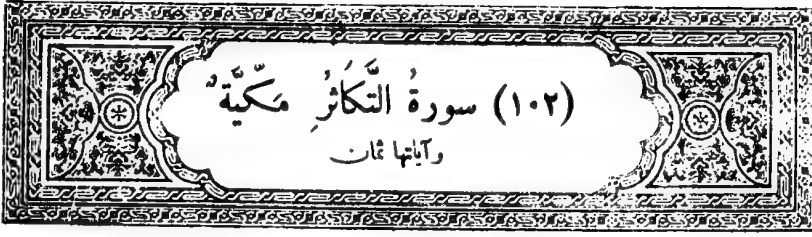 (١٠٢) سورةُ التَّكاثُرِ مَكيَّةٌ
وآياتها ثمان